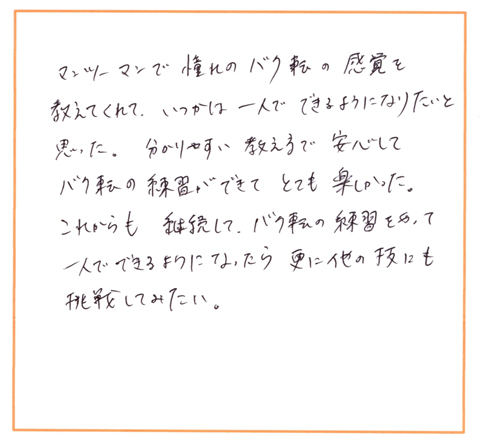 マンツーマンで 憧れの バク転の 感覚を
教えてくれて、いつかは 一人で できるようになりたいと
思った。 分かりやすい 教え方で 安心して
バク転の 練習ができて とても 楽しかった。
これからも 継続して、バク転の 練習をやって
一人で できるように なったら 更に 他の 技にも
挑戦してみたい。